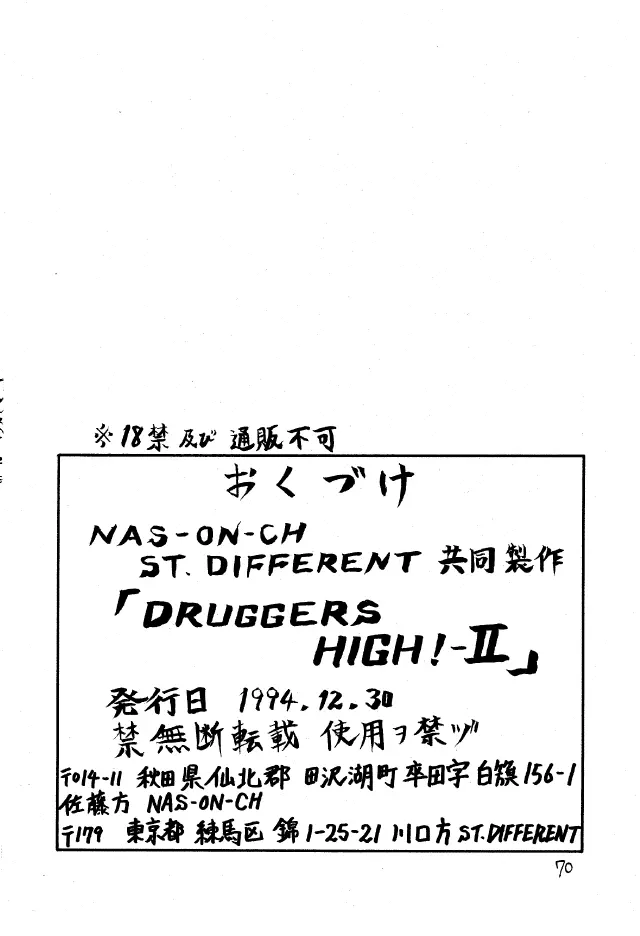 ※18禁及び通販不可
おくづけ
NAS-ON-CH
ST. DIFFERENT 共同製作
「DRUGGERS
HIGH!-II」
発行日 1994.12.30
禁無断転載 使用ヲ禁ヅ
〒014-11 秋田県仙北郡 田沢湖町卒田字白籏156-1
佐藤方 NAS-ON-CH
〒179 東京都 練馬区 錦1-25-21 川口方 ST.DIFFERENT
70